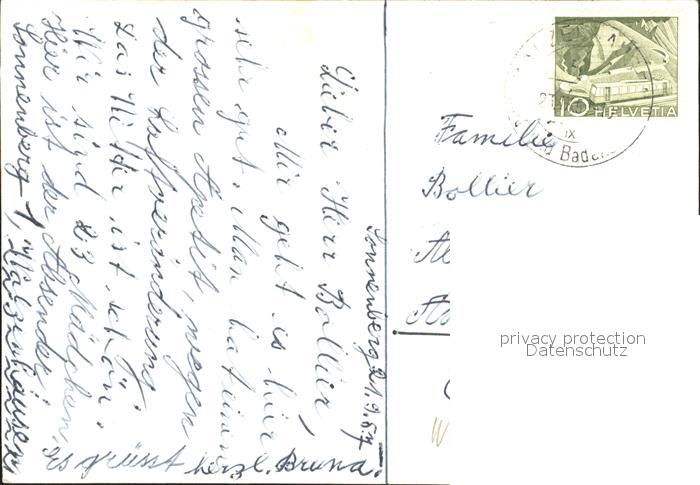 Sonnenberg 21.9.57
Lieber Herr Bollier,
Mir geht es hier
sehr gut. Man hat einen
grossen Apetit, wegen
der Luftveränderung
Das Wetter ist schön.
Wir sind 23 Mädchen.
Hier ist der Absender:
Sonnenberg 1, Walzenhausen
es grüsst herzl. Bruna.
Familie
Bollier
10 HELVETIA
IX
Bad
privacy protection
Datenschutz